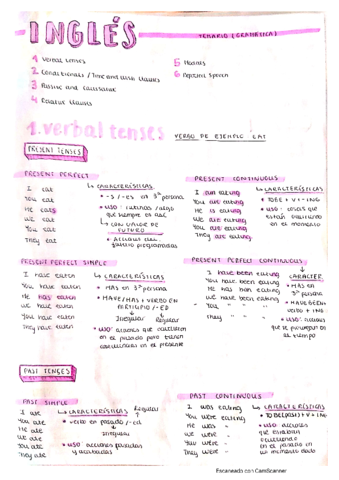 INGLÉS
TEMARIO (GRAMÁTICA)
1 Verbal tenses
2 Conditionals / Time and Wish Clauses
3 Passive and Causative
4 Relative Clauses
5 Modals
6 Reported Speech
1. verbal tenses
VERBO DE EJEMPLO EAT
PRESENT TENSES
PRESENT PERFECT
I eat
You eat
He eats
We eat
You eat
They eat
CARACTERÍSTICAS
-S / -ES en 3ª persona
USO: rutinas / algo
que siempre es así
CON VALOR DE
FUTURO
Acciones
programadas
PRESENT CONTINUOUS
I am eating
You are eating
He is eating
We are eating
You are eating
They are eating
CARACTERÍSTICAS
TO BE + V + -ING
USO: cosas que
están ocurriendo
en el momento
PRESENT PERFECT SIMPLE
I have eaten
You have eaten
He has eaten
We have eaten
You have eaten
They have eaten
CARACTERÍSTICAS
HAS en 3ª persona
HAVE/HAS + VERBO EN
PARTICIPIO / -ED
Irregular
Regular
USO: acciones que
en el pasado pero tienen
en el presente
PRESENT PERFECT CONTINUOUS
I have been eating
You have been eating
He has been eating
We have been eating
You " " "
They " " "
CARACTER.
HAS en 3ª
persona
HAVE BEEN
verbo + ING
USO: acciones
que se prolongan en
el tiempo
PAST TENSES
PAST SIMPLE
I ate
You ate
He ate
We ate
You ate
They ate
CARACTERÍSTICAS
Regular
verbo en pasado / -ED
Irregular
USO: acciones pasadas
y acabadas
PAST CONTINUOUS
I was eating
You were "
He was "
We were "
You were "
They were "
CARACTERÍSTICAS
TO BE (PAST) + V + ING
USO: acciones
que estaban
en el pasado en
un momento dado
Escaneado con CamScanner